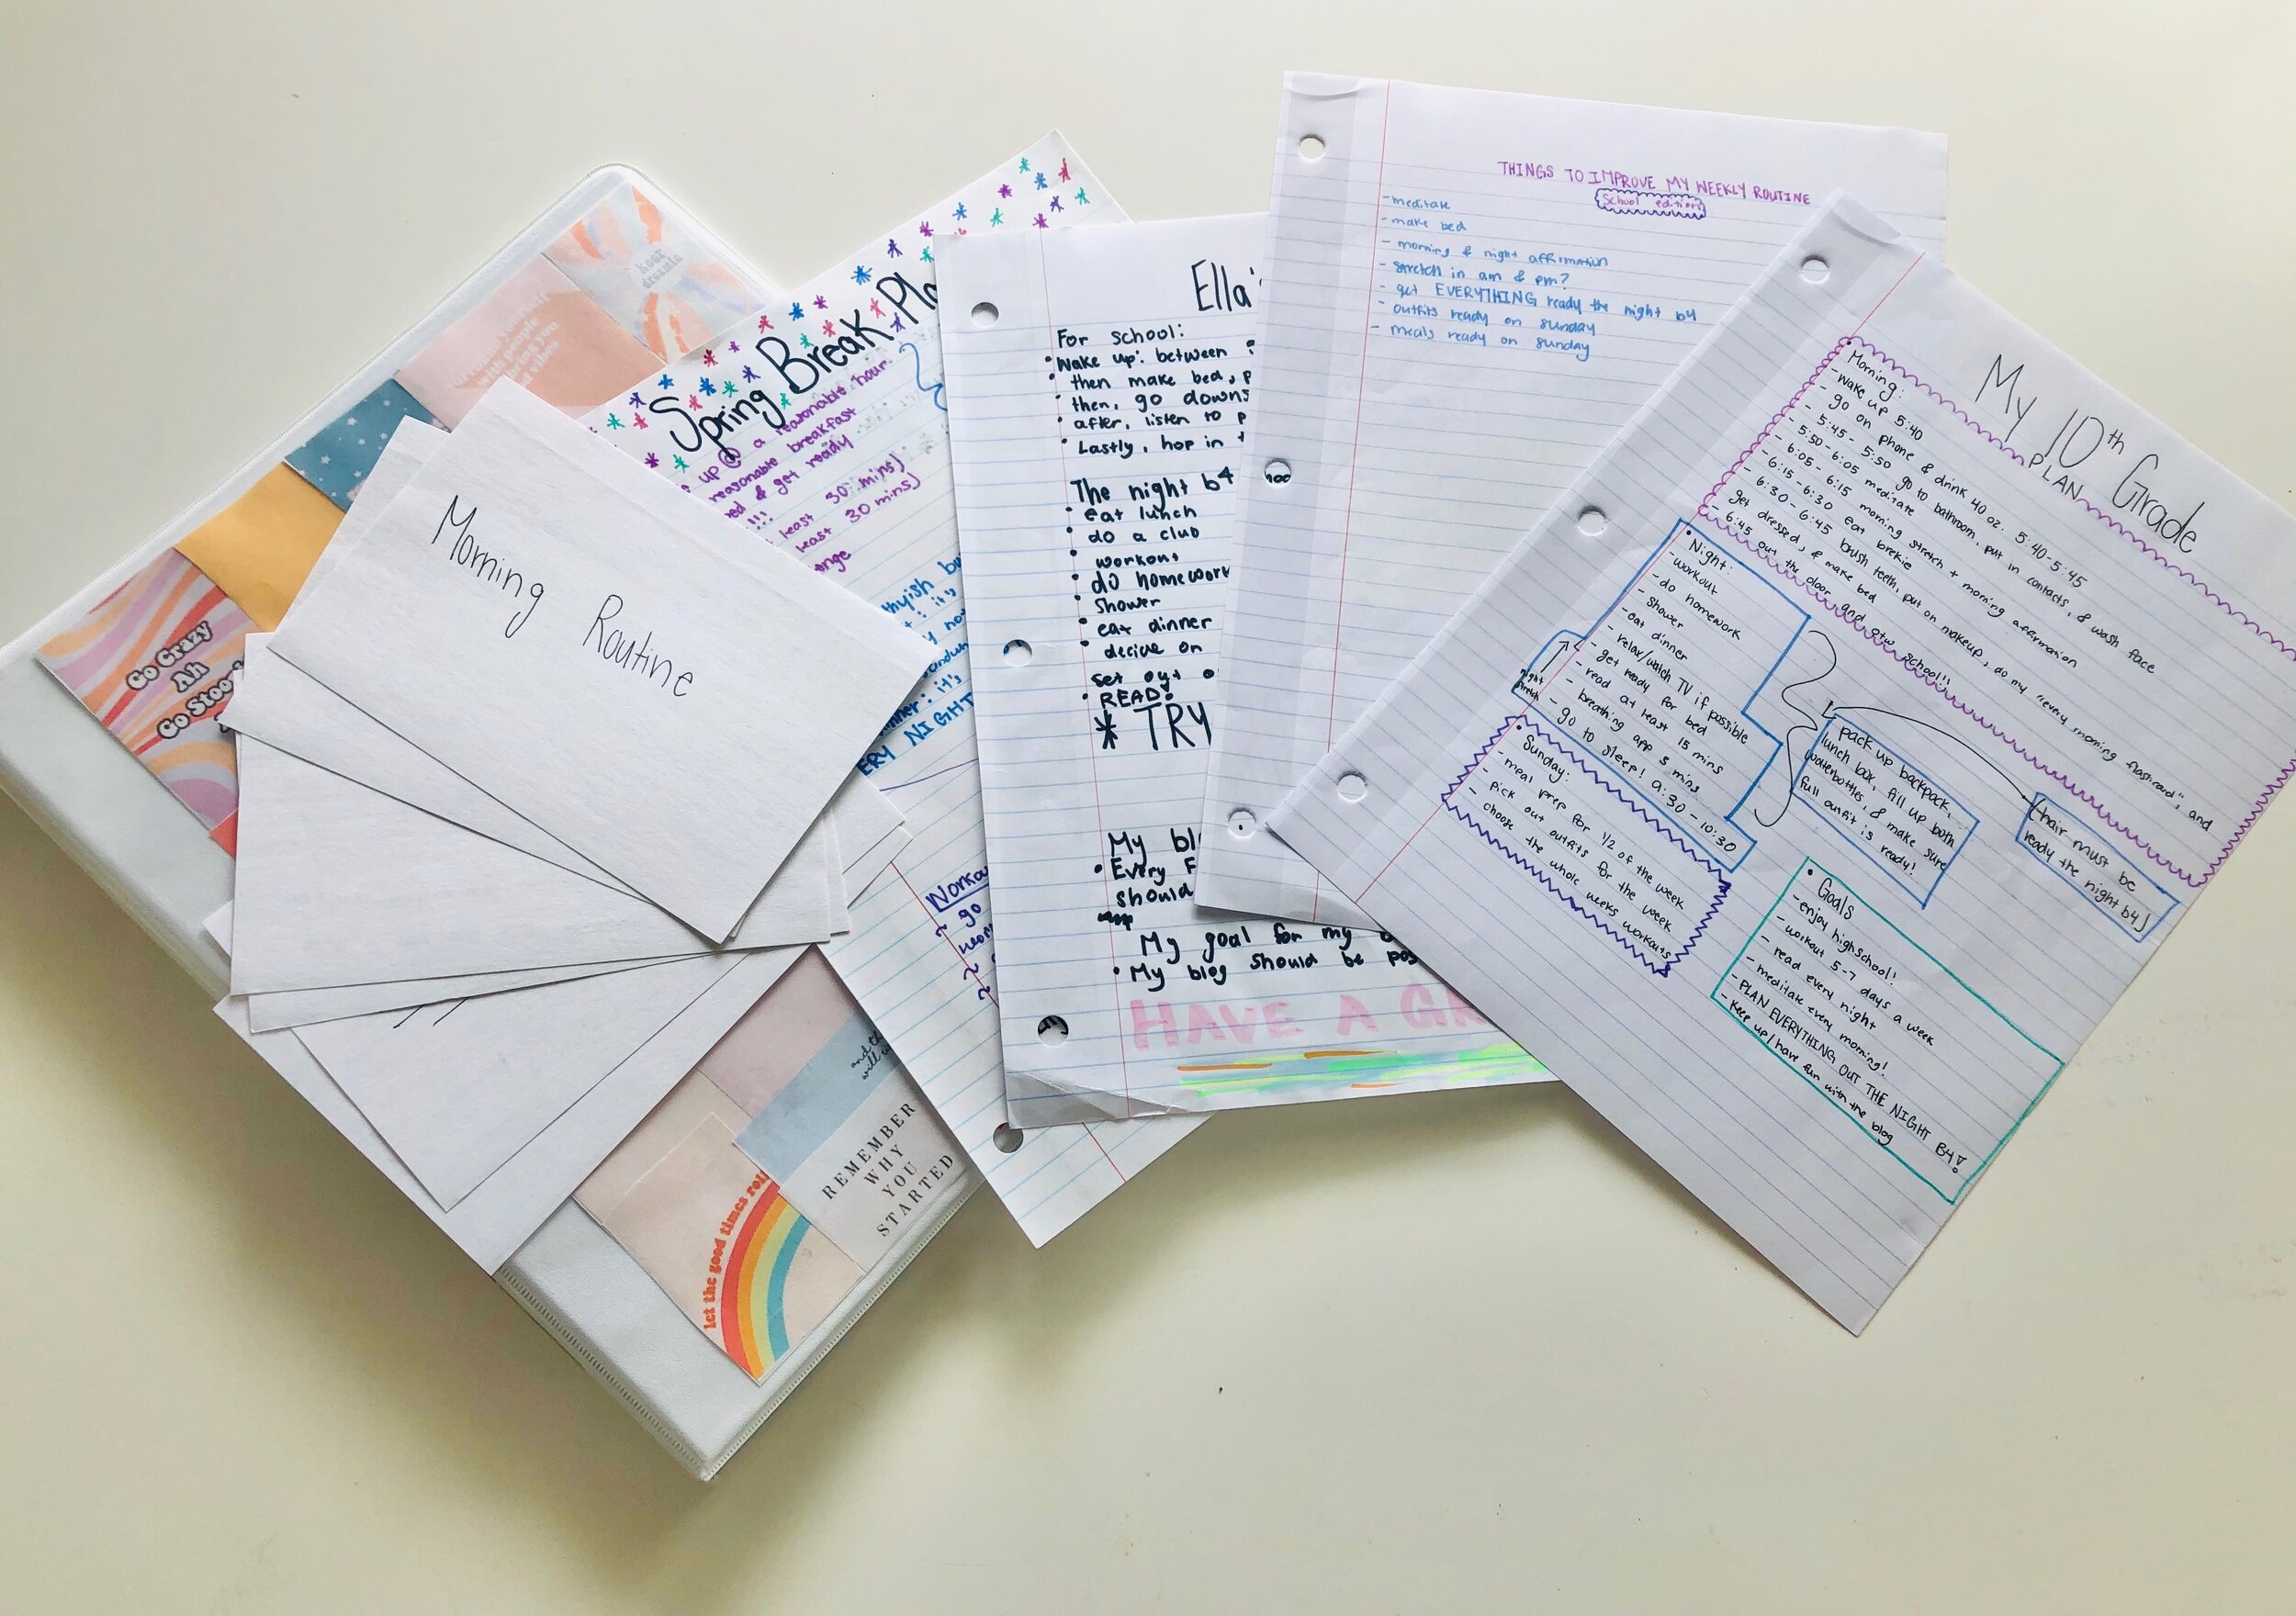 keep
dreamin
with people
bring you
d vibes
Go Crazy
Ah
Go Stoo
Morning Routine
and th
will w
REMEMBER
WHY
YOU
STARTED
let the good times roll
Spring Break Pla
up @ a reasonable hour
reasonable breakfast
ed & get ready
!!!
least 30 mins)
least 30 mins)
nge
thyish bu
it's
y no
nner: it's
ERY NIGHT
Workou
~ go
~
~
Ella's
For school:
• Wake up: between
• then make bed, p
• then, go downs
• after, listen to p
• Lastly, hop in t
The night b4
• eat lunch
• do a club
• workout
• do homework
• shower
• eat dinner
• decide on
set out o
• READ!
* TRY
My blo
• Every F
should
My goal for my b
• My blog should be pos
HAVE A GR
THINGS TO IMPROVE MY WEEKLY ROUTINE
School edition
- meditate
- make bed
- morning & night affirmation
- stretch in am & pm?
- get EVERYTHING ready the night b4
- outfits ready on sunday
- meals ready on sunday
My 10th Grade
PLAN
• Morning:
- wake up 5:40
- go on phone & drink 40 oz. 5:40-5:45
- 5:45-5:50 go to bathroom, put in contacts, & wash face
- 5:50-6:05 meditate
- 6:05-6:15 morning stretch + morning affirmation
- 6:15-6:30 eat brekie
- 6:30-6:45 brush teeth, put on makeup, do my "every morning flashcard", and
get dressed, & make bed
- 6:45 out the door and otw school!!
• Night:
- workout
- do homework
- shower
- eat dinner
- relax/watch TV if possible
- get ready for bed
- read at least 15 mins
- breathing app 5 mins
- go to sleep! 9:30-10:30
night
stretch
pack up backpack,
lunch box, fill up both
waterbottles, & make sure
full outfit is ready!
(hair must be
ready the night b4)
• Sunday:
- meal prep for 1/2 of the week
- pick out outfits for the week
- choose the whole weeks workouts
• Goals
- enjoy highschool!
- workout 5-7 days a week
- read every night
- meditate every morning!
- PLAN EVERYTHING OUT THE NIGHT B4!
- keep up/have fun with the blog